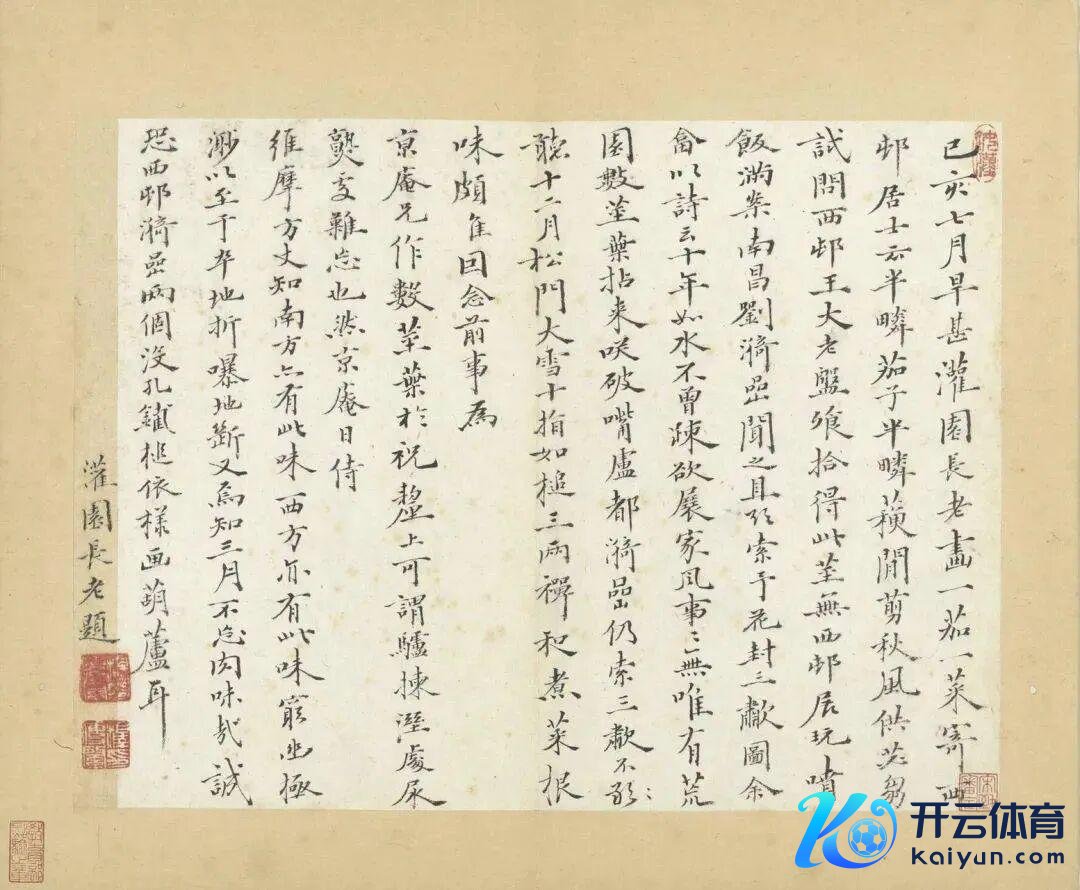 己亥七月旱甚灌園長老畫一茄一菜寄西
邨居士云半疄茄子半疄蔬閒剪秋風供苾芻
試問西邨王大老盤飧拾得此莖無西邨居玩噴
飯滿案南昌劉漪嵒聞之且索予花封三顧圖余
畣以詩云十年如水不曾疎欲展家風事〻無唯有荒
園數莖葉拈来咲破嘴盧都漪嵒仍索三顧不
聽十二月松門大雪十指如槌三兩禪和煮菜根
味頗隹回念前事為
京庵兄作數莖葉於祝釐上可謂驢揀溼處尿
熟處難忘也然京庵日侍
維摩方丈知南方亦有此味西方亦有此味窮幽極
渺以至于卒地折嚗地斷又焉知三月不忘肉味哉誠
恐西邨漪嵒兩個没孔鐵槌依樣画葫蘆耳
灌園長老題
开云体育
kaiyun.com